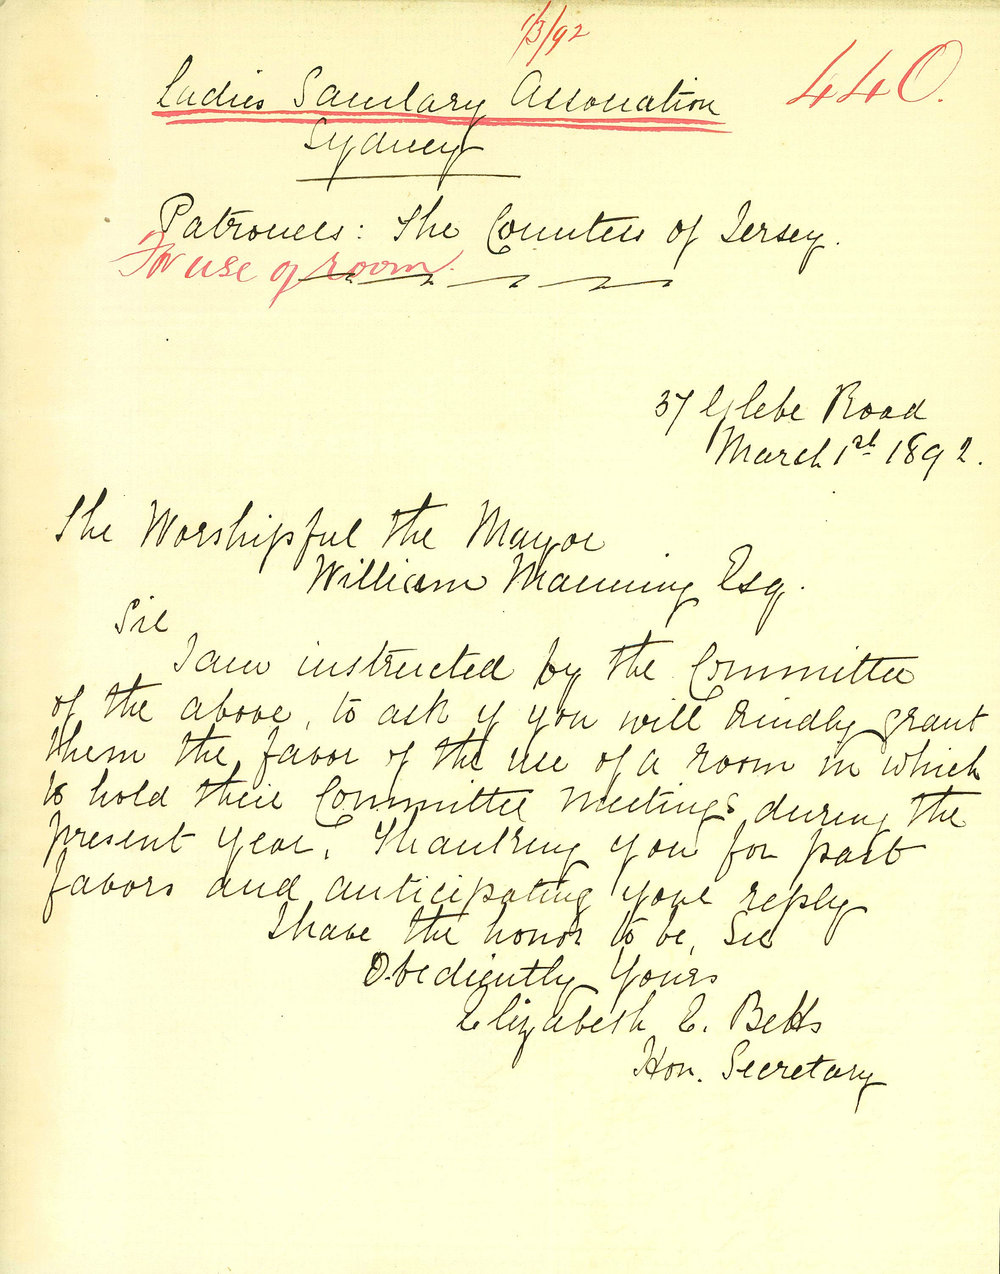 1/3/92
440.
Ladies Sanitary Association
Sydney
Patroness: The Countess of Jersey.
For use of room.
37 Glebe Road
March 1st 1892.
The Worshipful the Mayor
William Manning Esq.
Sir
I am instructed by the Committee
of the above, to ask if you will kindly grant
them the favor of the use of a room in which
to hold their Committee Meetings during the
present year. Thanking you for past
favors and anticipating your reply
I have the honor to be, Sir
Obediently Yours
Elizabeth E. Betts
Hon. Secretary